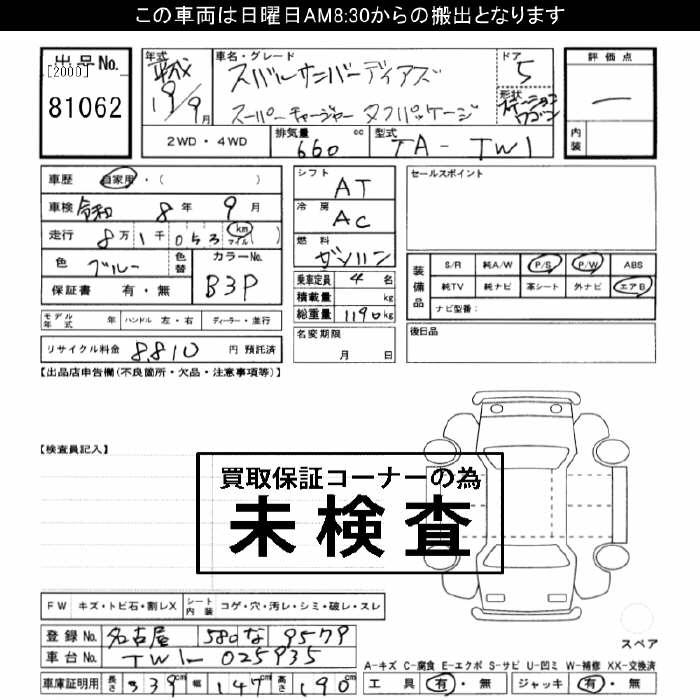 この車両は日曜日AM8:30からの搬出となります
出品No. [2000] 81062
年式 平成 19/9月
車名・グレード スバルサンバーディアス
スーパーチャージャー タフパッケージ
ドア 5
形状 ステーションワゴン
評価点 一
内装
2WD・4WD 排気量 660 cc 型式 TA-TW1
車歴 自家用・( )
車検 令和 8年 9月
走行 8万1千053 km マイル( )
色 ブルー 色替 カラーNo. B3P
保証書 有・無
シフト AT
冷房 AC
燃料 ガソリン
乗車定員 4 名
積載量 kg
総重量 1190 kg
セールスポイント
装備品 S/R 純A/W P/S P/W ABS
純TV 純ナビ 革シート 外ナビ エアB
ナビ型番:
モデル年式 年 ハンドル 左・右 ディーラー・並行
リサイクル料金 8,810 円 預託済
名変期限 月 日
復日品
【出品店申告欄(不良箇所・欠品・注意事項等)】
【検査員記入】
買取保証コーナーの為
未検査
FW キズ・トビ石・割レX シート内装 コゲ・穴・汚レ・シミ・破レ・スレ
登録No. 名古屋 580 な 9579
車台No. TW1-025935
車庫証明用 長さ 339 cm 幅 147 cm 高さ 190 cm
スペア
A-キズ C-腐食 E-エクボ S-サビ U-凹ミ W-補修 XX-交換済
工具 有・無 ジャッキ 有・無